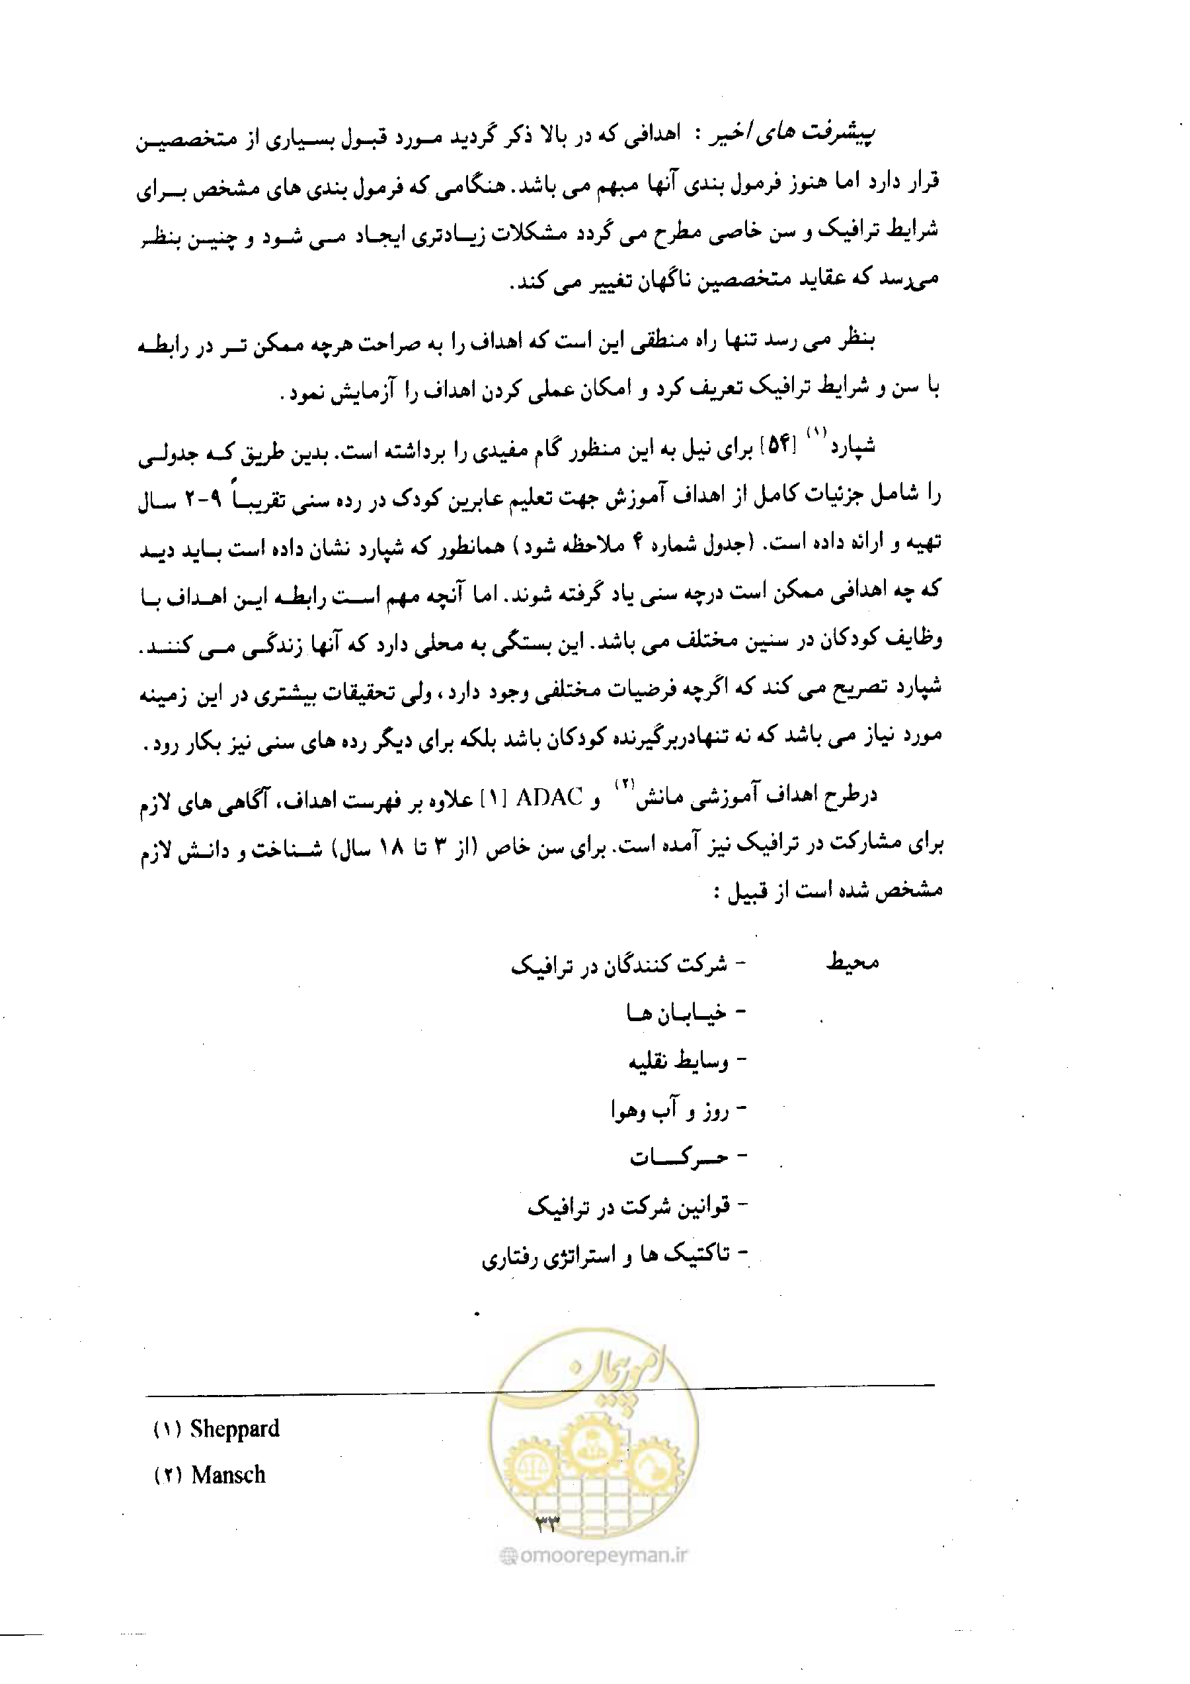 پیشرفت های اخیر : اهدافی که در بالا ذکر گردید مورد قبول بسیاری از متخصصین
قرار دارد اما هنوز فرمول بندی آنها مبهم می باشد. هنگامی که فرمول بندی های مشخص برای
شرایط ترافیک و سن خاصی مطرح می گردد مشکلات زیادتری ایجاد می شود و چنین بنظر
می‌رسد که عقاید متخصصین ناگهان تغییر می کند.
بنظر می رسد تنها راه منطقی این است که اهداف را به صراحت هرچه ممکن تر در رابطه
با سن و شرایط ترافیک تعریف کرد و امکان عملی کردن اهداف را آزمایش نمود.
شپارد(۱) [۵۴] برای نیل به این منظور گام مفیدی را برداشته است. بدین طریق که جدولی
را شامل جزئیات کامل از اهداف آموزش جهت تعلیم عابرین کودک در رده سنی تقریباً ۹-۲ سال
تهیه و ارائه داده است. (جدول شماره ۴ ملاحظه شود) همانطور که شپارد نشان داده است باید دید
که چه اهدافی ممکن است درچه سنی یاد گرفته شوند. اما آنچه مهم است رابطه این اهداف با
وظایف کودکان در سنین مختلف می باشد. این بستگی به محلی دارد که آنها زندگی می کنند.
شپارد تصریح می کند که اگرچه فرضیات مختلفی وجود دارد، ولی تحقیقات بیشتری در این زمینه
مورد نیاز می باشد که نه تنهادربرگیرنده کودکان باشد بلکه برای دیگر رده های سنی نیز بکار رود.
درطرح اهداف آموزشی مانش(۲) و ADAC [۱] علاوه بر فهرست اهداف، آگاهی های لازم
برای مشارکت در ترافیک نیز آمده است. برای سن خاص (از ۳ تا ۱۸ سال) شناخت و دانش لازم
مشخص شده است از قبیل :
محیط - شرکت کنندگان در ترافیک
- خیابان ها
- وسایط نقلیه
- روز و آب وهوا
- حرکات
- قوانین شرکت در ترافیک
- تاکتیک ها و استراتژی رفتاری
امور پیمان
(۱) Sheppard
(۲) Mansch
۳۳
@omoorepeyman.ir